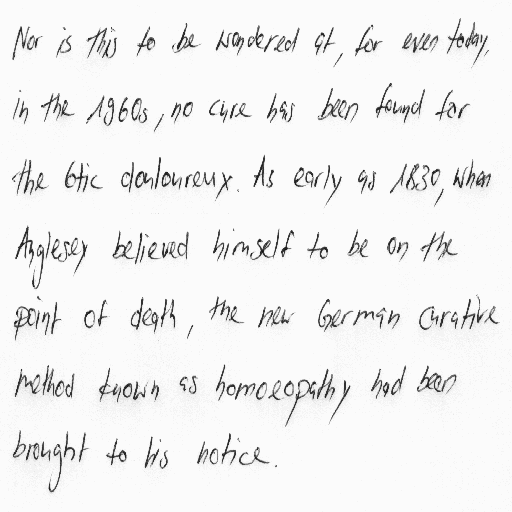 Nor is this to be wondered at, for even today,
in the 1960s, no cure has been found for
the tic douloureux. As early as 1830, when
Anglesey believed himself to be on the
point of death, the new German curative
method known as homoeopathy had been
brought to his notice.